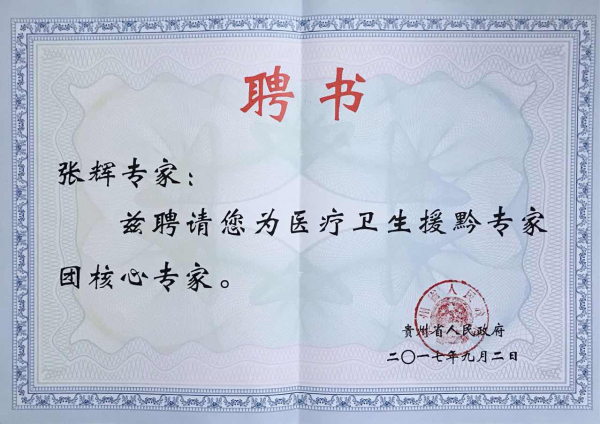 聘书
张辉专家：
兹聘请您为医疗卫生援黔专家
团核心专家。
贵州省人民政府
二〇一七年九月二日